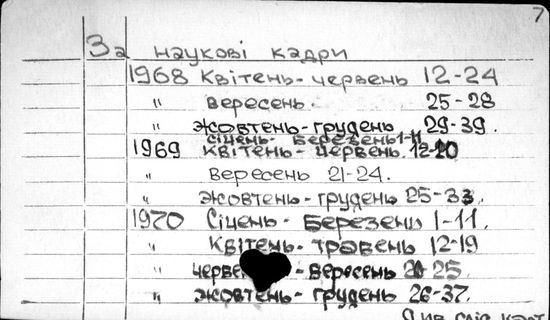 7
За наукові кадри
1968 Квітень-червень 12-24
" вересень. 25-28
" жовтень-грудень 29-39.
січень-березень 1-11
1969 квітень-червень. 12-20
" вересень 21-24.
" жовтень-грудень 25-33.
1970 Січень-Березень 1-11.
" квітень-травень 12-19
" черве - вересень 25.
" жовтень-грудень 26-37.